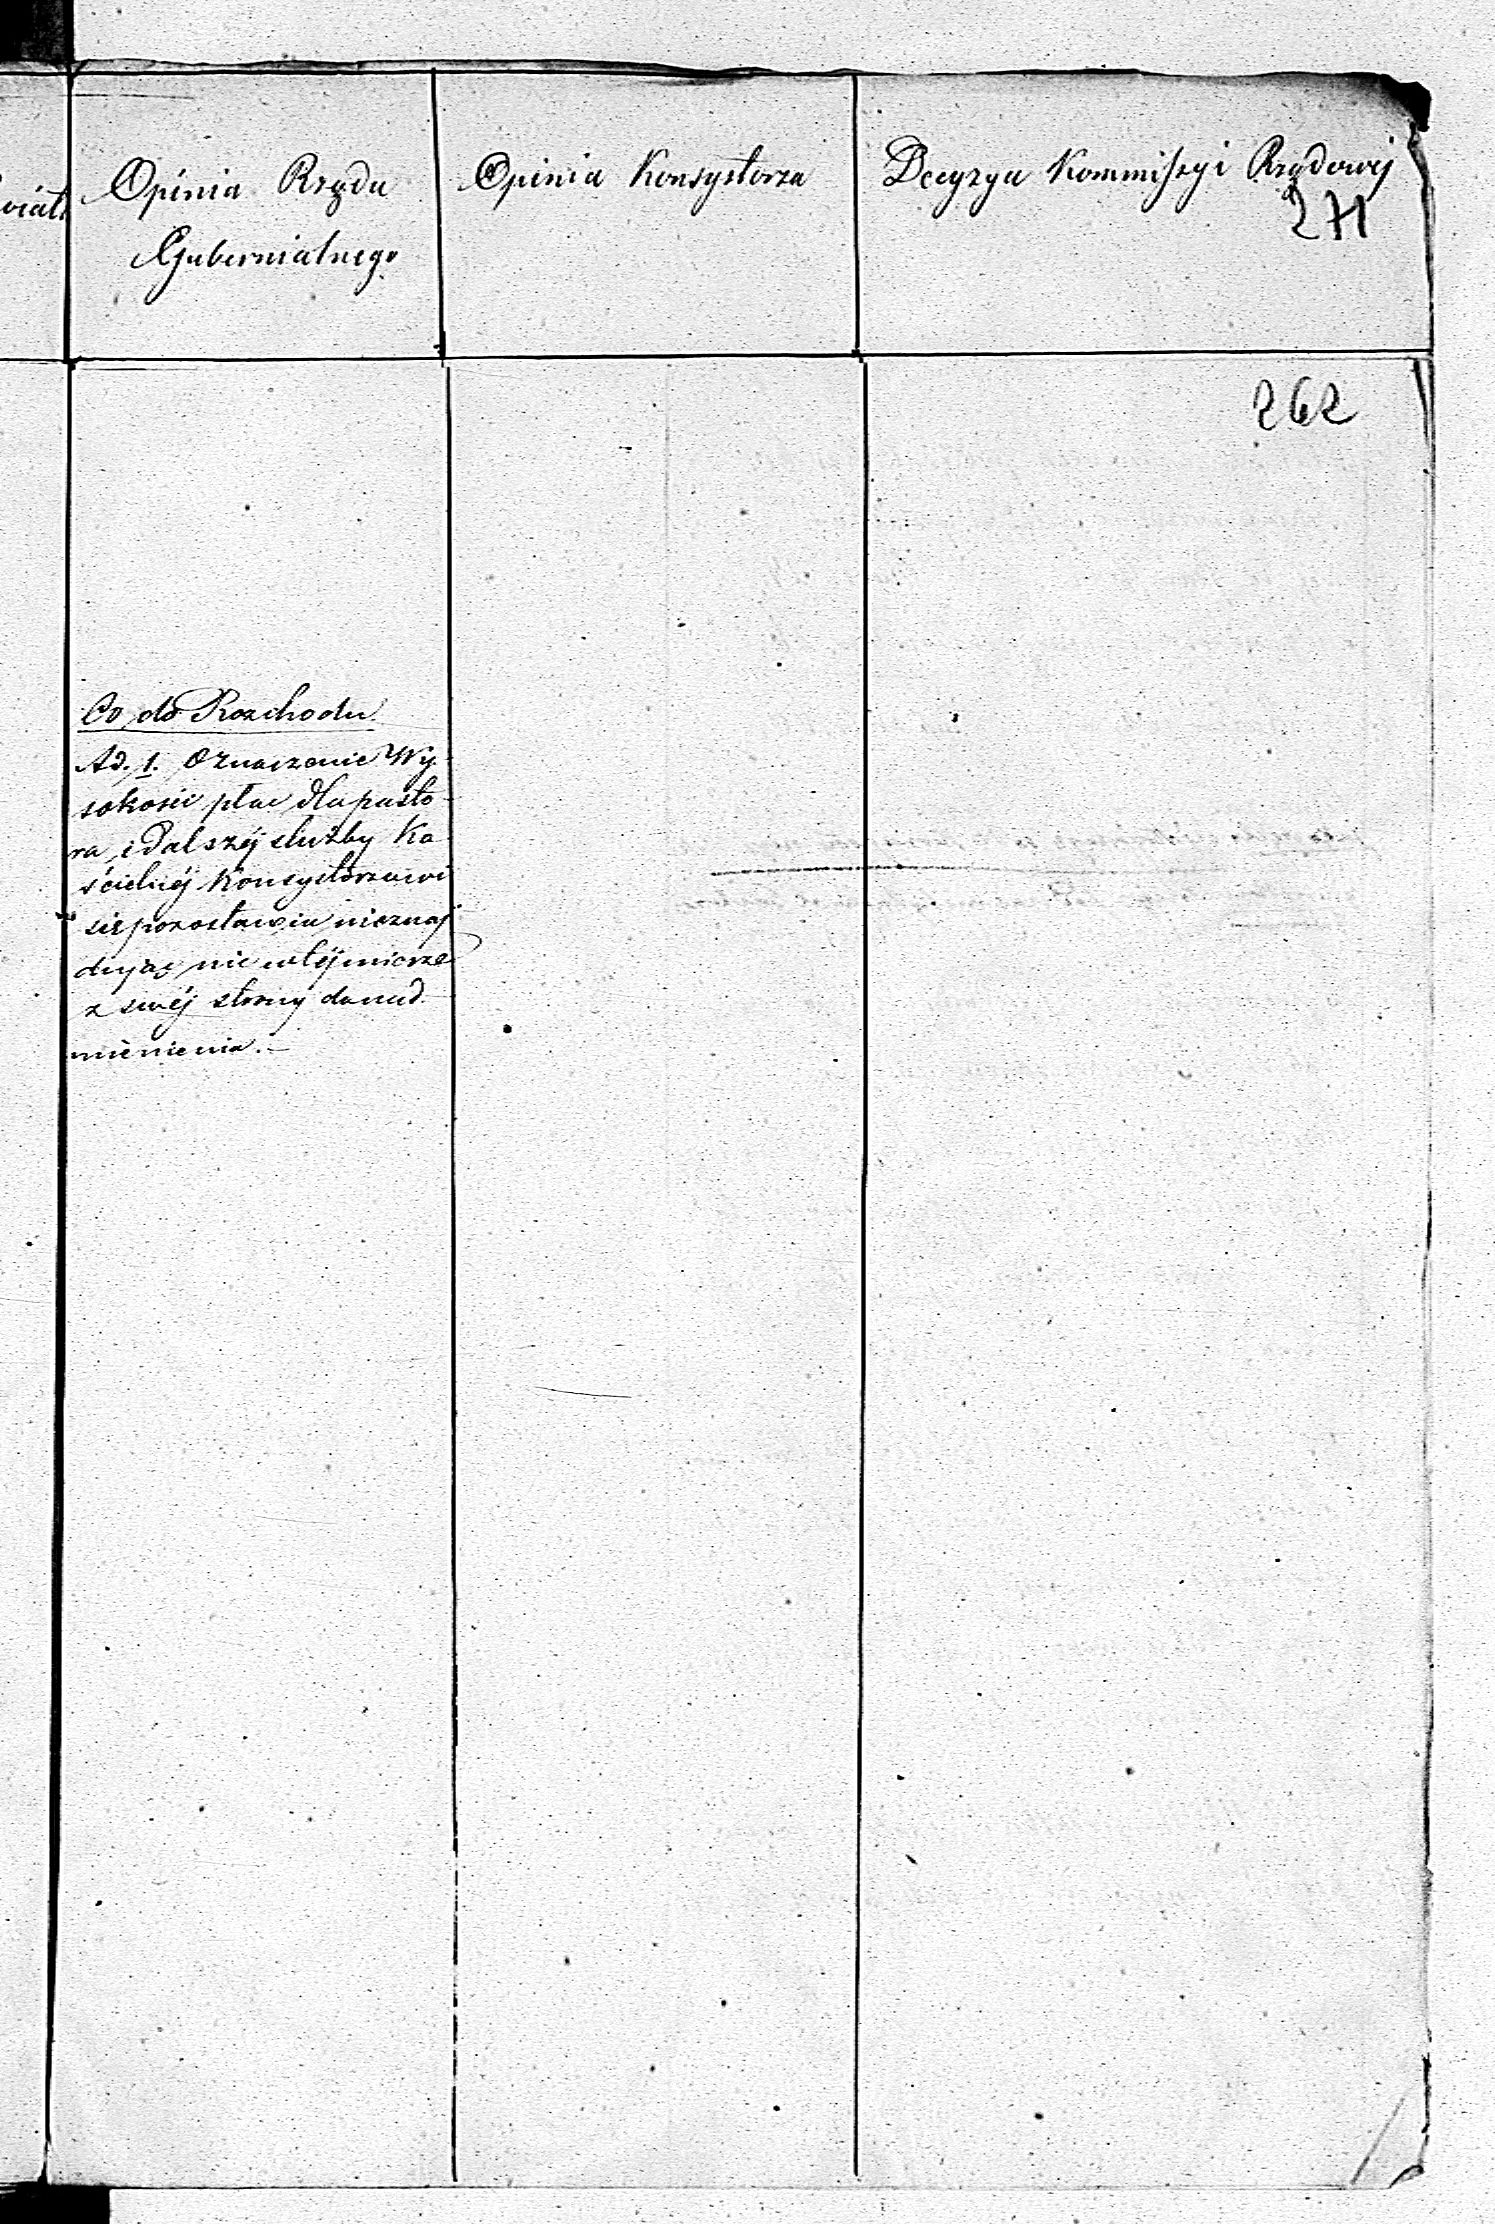 Opinia Rządu
Gubernialnego
Opinia Konsystorza
Decyzya Kommissyi Rządowej
271
262
Co do Rozchodu
Ad. 1. Oznaczenie Wy-
sokości płac dla pasto-
ra i dalszéj służby Ko-
ścielnéj Konsystorzowi
się pozostawia nieznaj-
dując nic w téj mierze
z swéj strony do nad-
mienienia.